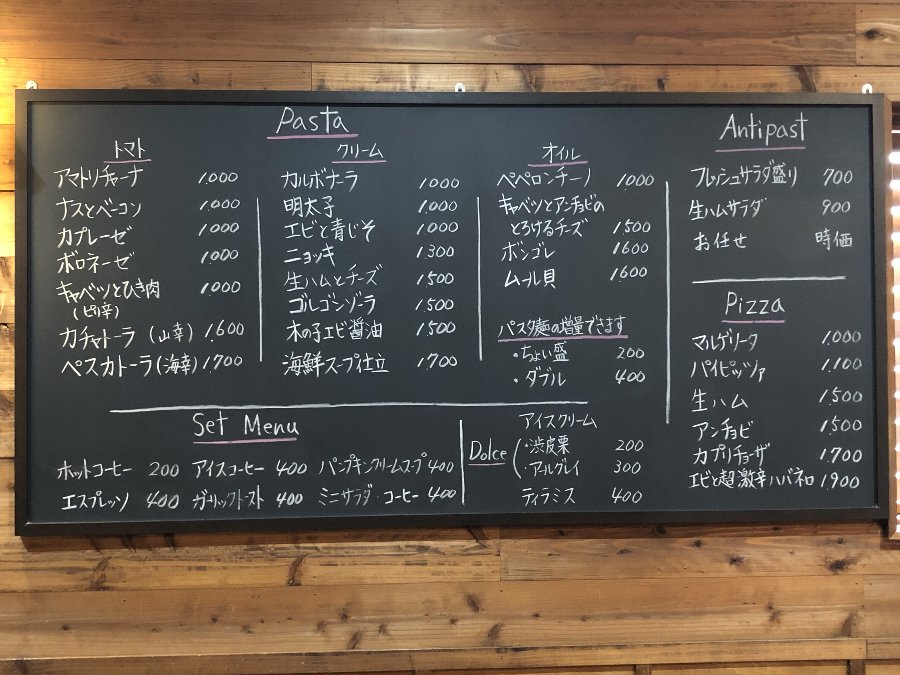 Pasta
トマト
アマトリチャーナ 1.000
ナスとベーコン 1.000
カプレーゼ 1.000
ボロネーゼ 1.000
キャベツとひき肉 1.000
(ピリ辛)
カチャトーラ (山幸) 1.600
ペスカトーラ (海幸) 1.700
クリーム
カルボナーラ 1.000
明太子 1.000
エビと青じそ 1.000
ニョッキ 1.300
生ハムとチーズ 1.500
ゴルゴンゾラ 1.500
木の子エビ醤油 1.500
海鮮スープ仕立 1.700
オイル
ペペロンチーノ 1.000
キャベツとアンチョビの
とろけるチーズ 1.500
ボンゴレ 1.600
ムール貝 1.600
パスタ麺の増量できます
・ちょい盛 200
・ダブル 400
Antipast
フレッシュサラダ盛り 700
生ハムサラダ 900
お任せ 時価
Pizza
マルゲリータ 1.000
パイピッツァ 1.100
生ハム 1.500
アンチョビ 1.500
カプリチョーザ 1.700
エビと超激辛ハバネロ 1.900
Set Menu
ホットコーヒー 200 アイスコーヒー 400 パンプキンクリームスープ 400
エスプレッソ 400 ガーリックトースト 400 ミニサラダ・コーヒー 400
Dolce
アイスクリーム
・渋皮栗 200
・アールグレイ 300
ティラミス 400